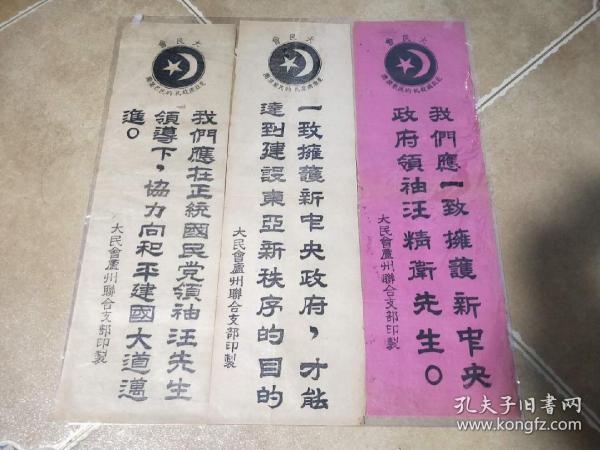 大民會
我們應一致擁護新中央
政府領袖汪精衛先生。
大民會廬州聯合支部印製
大民會
一致擁護新中央政府,才能
達到建設東亞新秩序的目的
大民會廬州聯合支部印製
大民會
我們應在正統國民党領袖汪先生
領導下,協力向和平建國大道邁
進。
大民會廬州聯合支部印製
孔夫子旧書网
www.kongfz.com